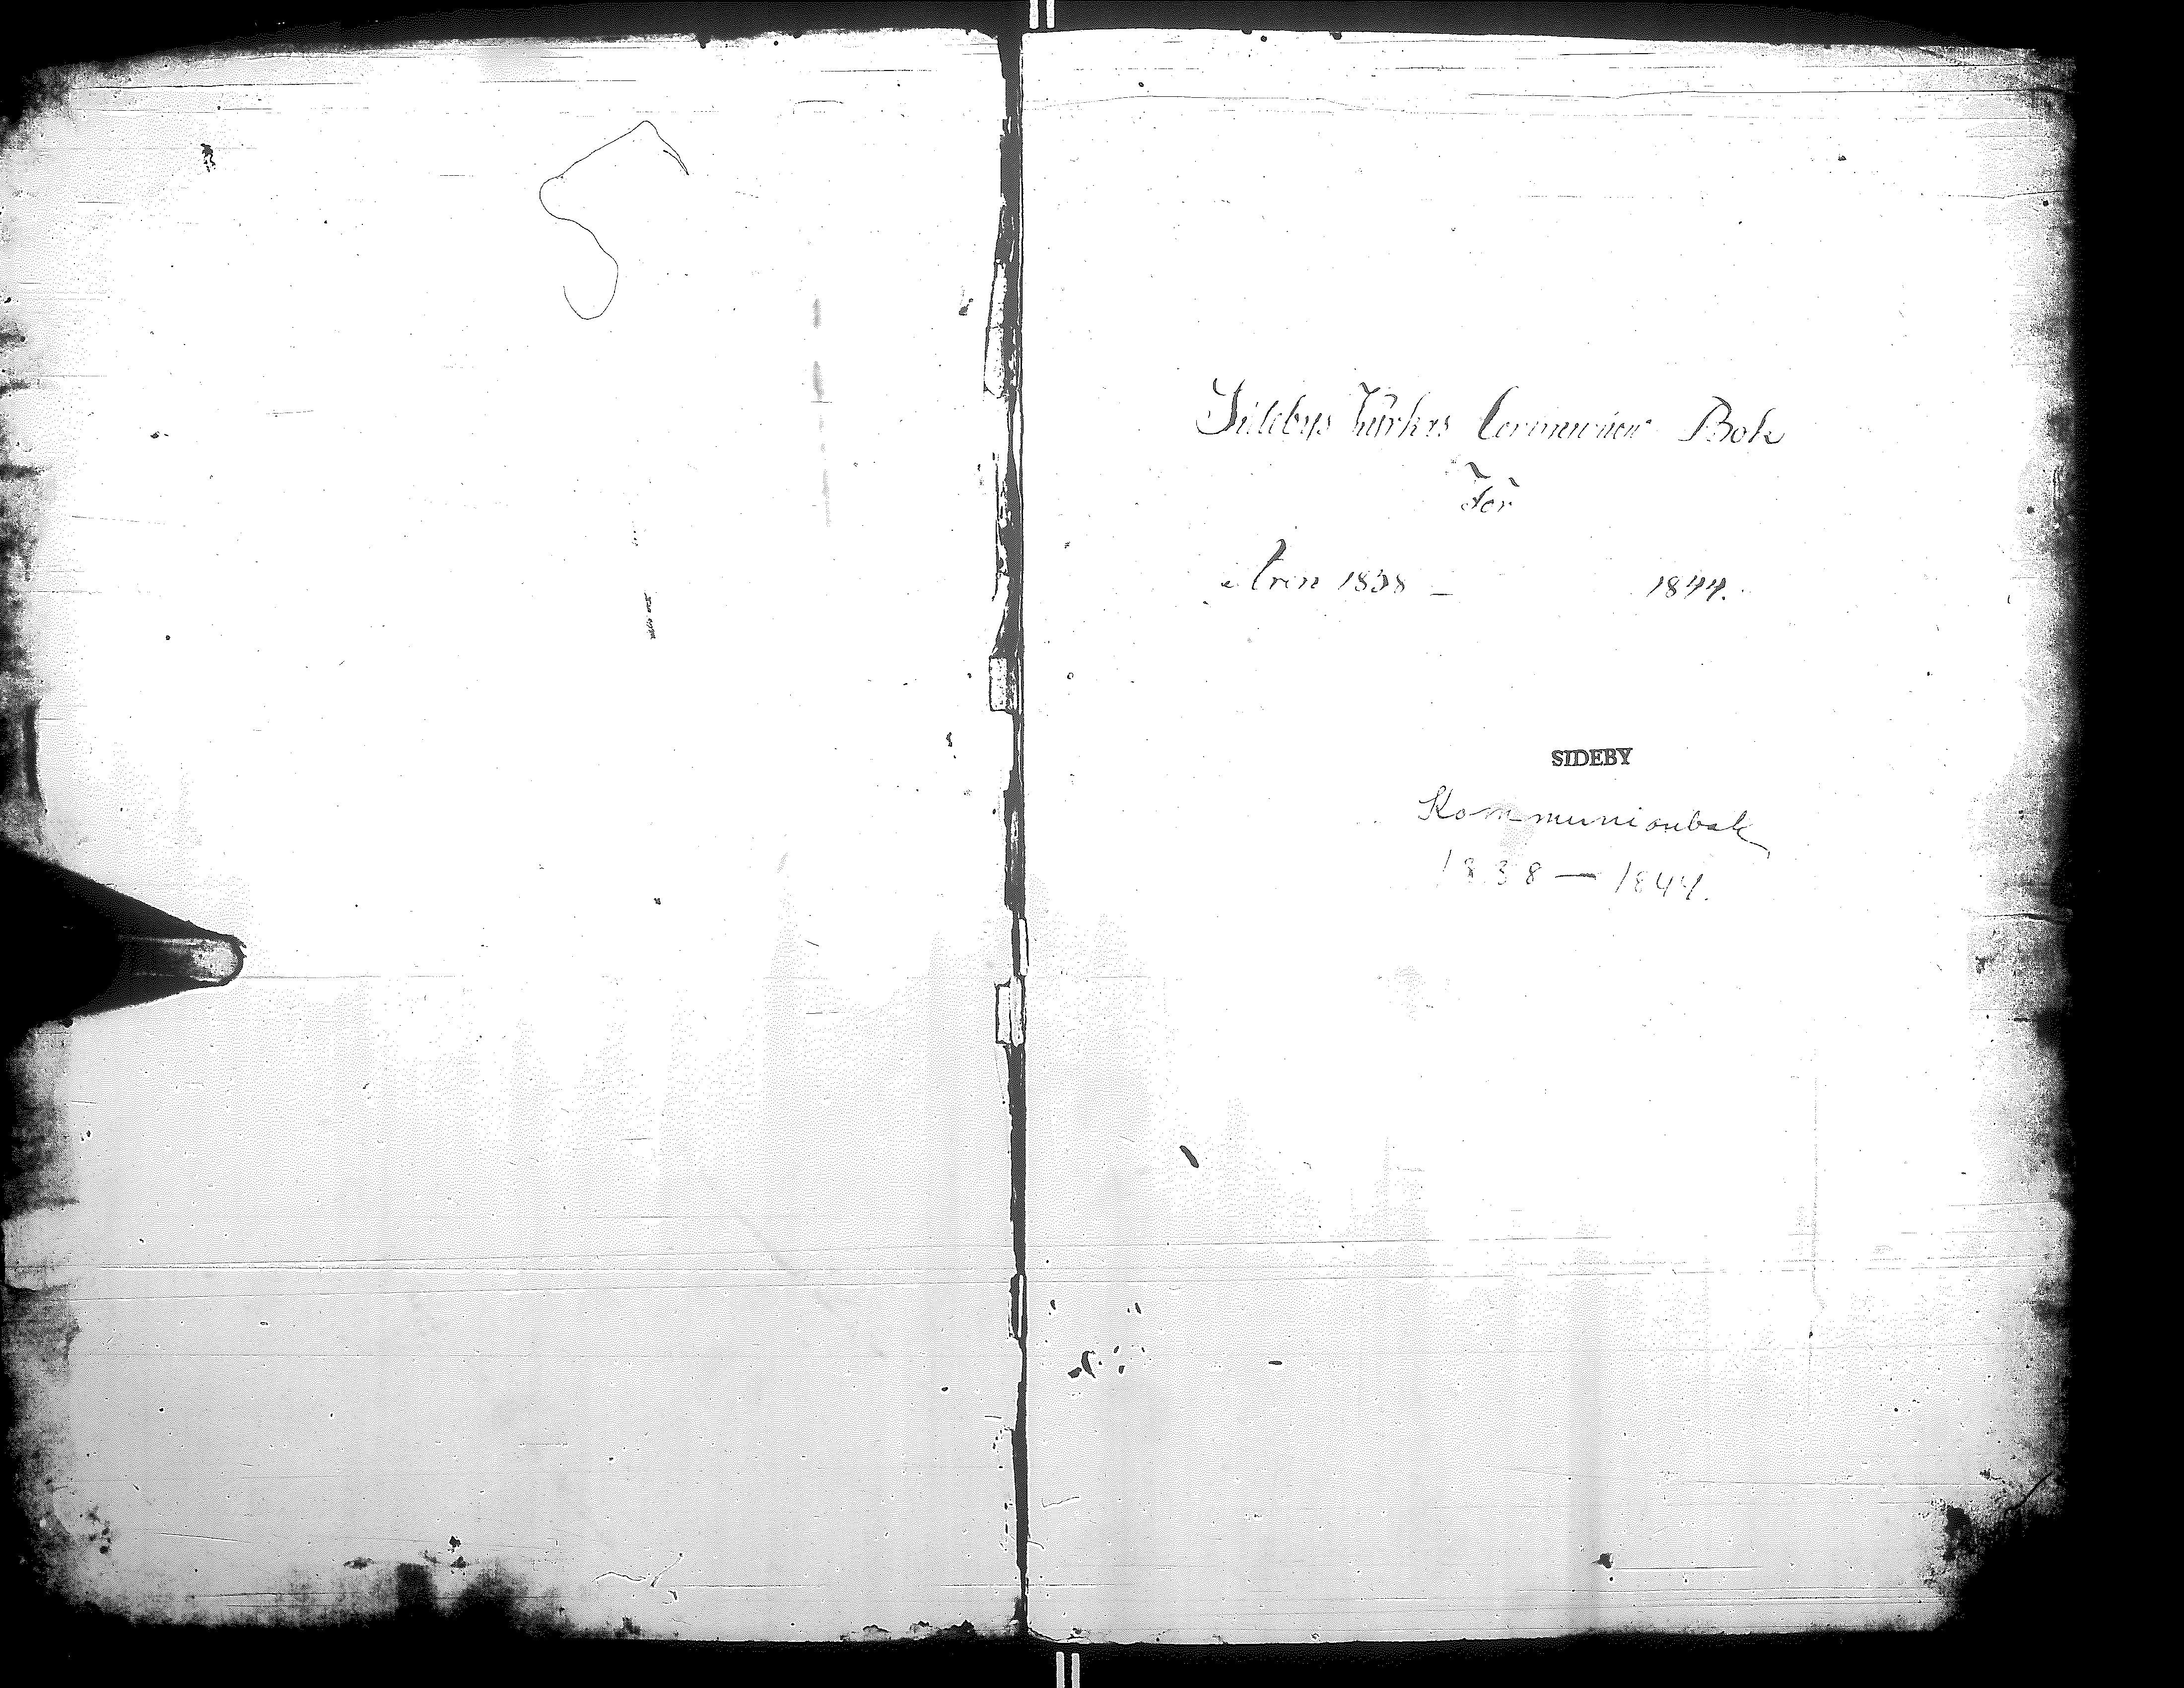 Sideby's Kyrkas Communion Bok
För
Åren 1838 – 1844.
SIDEBY
Kommunionbok
1838 — 1844.